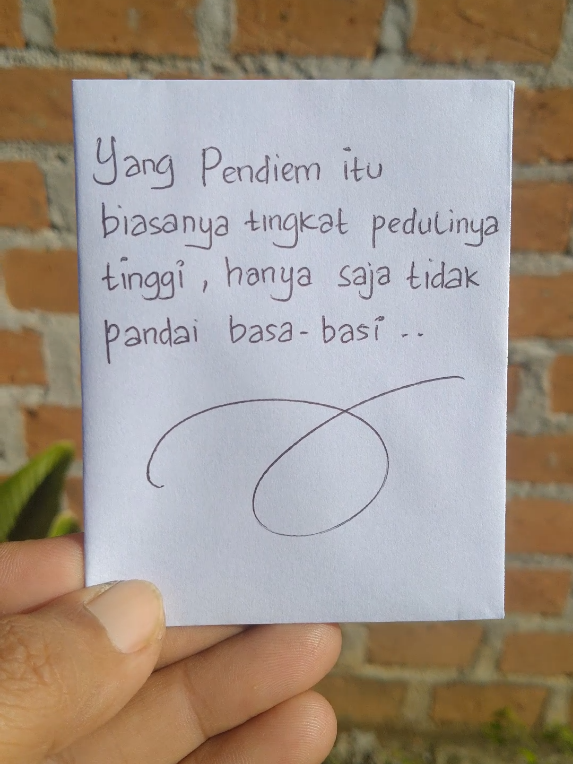 Yang Pendiem itu
biasanya tingkat pedulinya
tinggi, hanya saja tidak
pandai basa-basi ..